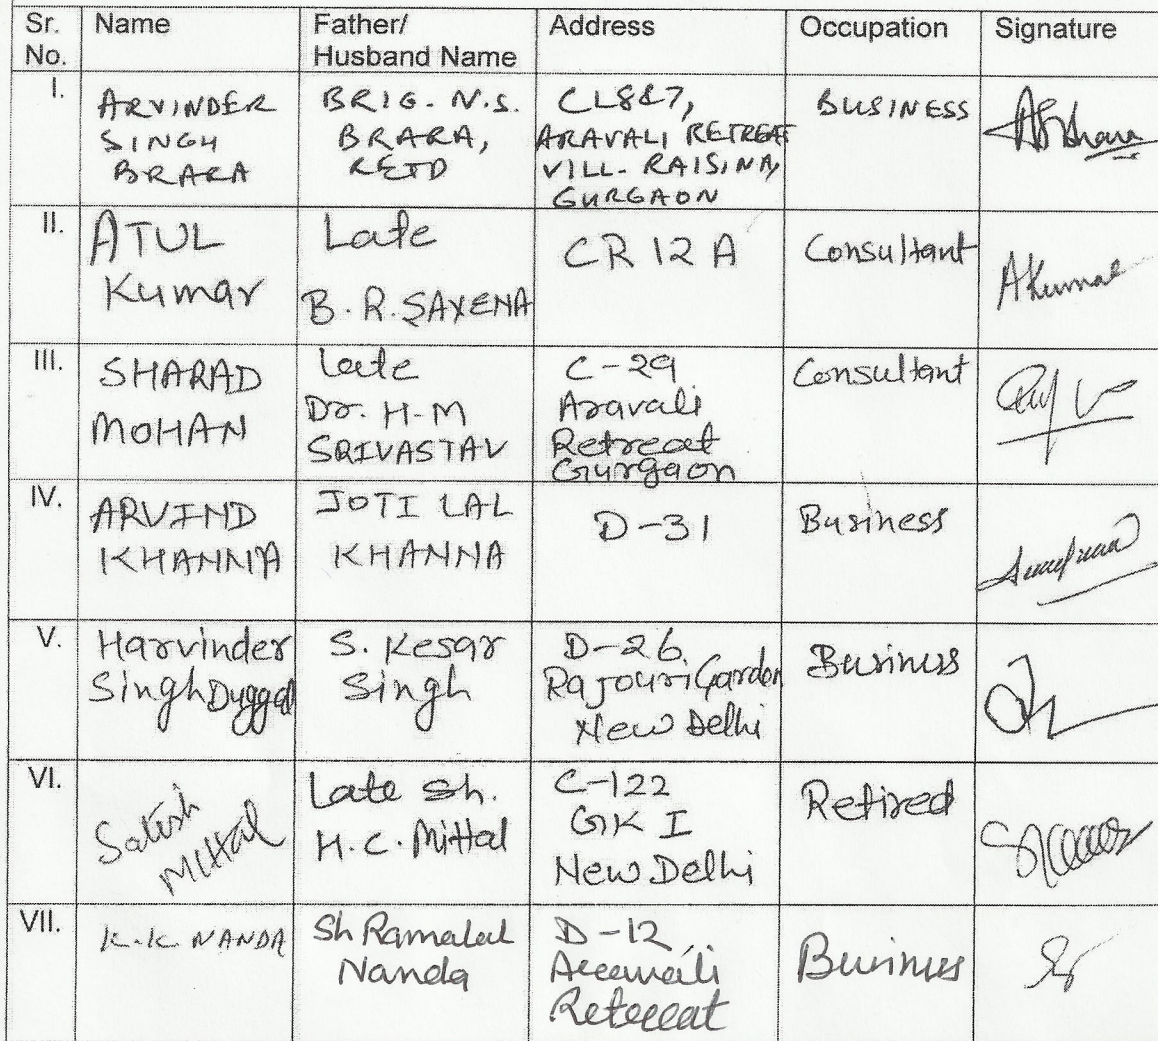 Sr. No. Name Father/ Husband Name Address Occupation Signature
I. ARVINDER SINGH BRARA BRIG. N.S. BRARA, RETD CL8&7, ARAVALI RETREAT VILL. RAISINA, GURGAON BUSINESS
II. ATUL Kumar Late B.R. SAXENA CR 12 A Consultant AKumar
III. SHARAD MOHAN Late Dr. H-M SRIVASTAV C-29 Aravali Retreat Gurgaon Consultant
IV. ARVIND KHANNA JOTI LAL KHANNA D-31 Business
V. Harvinder Singh Duggal S. Kesar Singh D-26. Rajouri Garden New Delhi Business
VI. Satish Mittal Late Sh. H.C. Mittal C-122 GK I New Delhi Retired
VII. K.K NANDA Sh Ramalal Nanda D-12, Aravali Retreat Business